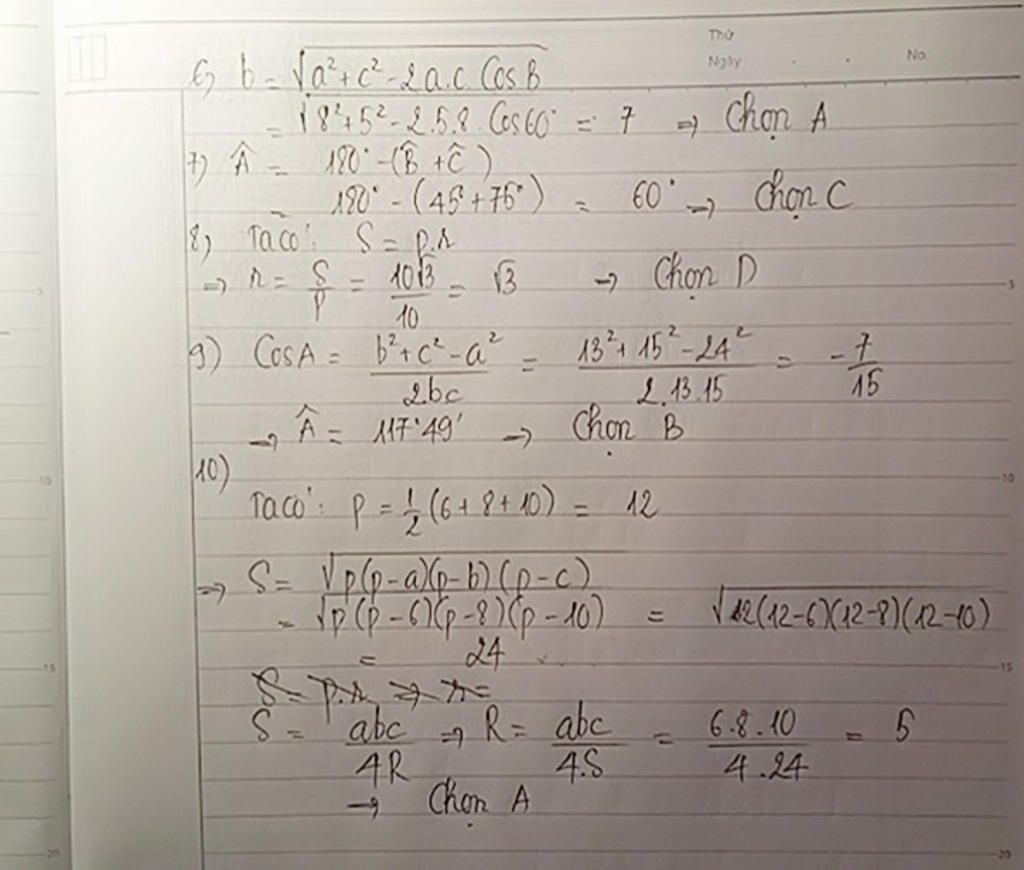 Thứ
Ngày . . No.
6) b = √(a² + c² - 2a.c. CosB)
= √(8² + 5² - 2.5.8. Cos60°) = 7 ⇒ Chọn A
7) Â = 180° - (B̂ + Ĉ)
= 180° - (45° + 75°) = 60° → Chọn C
8) Ta có: S = p.r
⇒ r = S/p = 10√3/10 = √3 → Chọn D
9) CosA = (b² + c² - a²)/(2bc) = (13² + 15² - 24²)/(2.13.15) = -7/15
→ Â = 117°49' → Chọn B
10)
Ta có: p = 1/2 (6 + 8 + 10) = 12
⇒ S = √(p(p-a)(p-b)(p-c))
= √(p(p-6)(p-8)(p-10)) = √(12(12-6)(12-8)(12-10))
= 24
S = p.r ⇒ r =
S = abc/4R ⇒ R = abc/4.S = 6.8.10/4.24 = 5
→ Chọn A